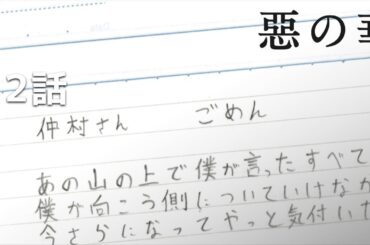 惡の華
2話
仲村さん ごめん
あの山の上で僕が言ったすべて
僕が向こう側についていけなか
今さらになってやっと気付いた